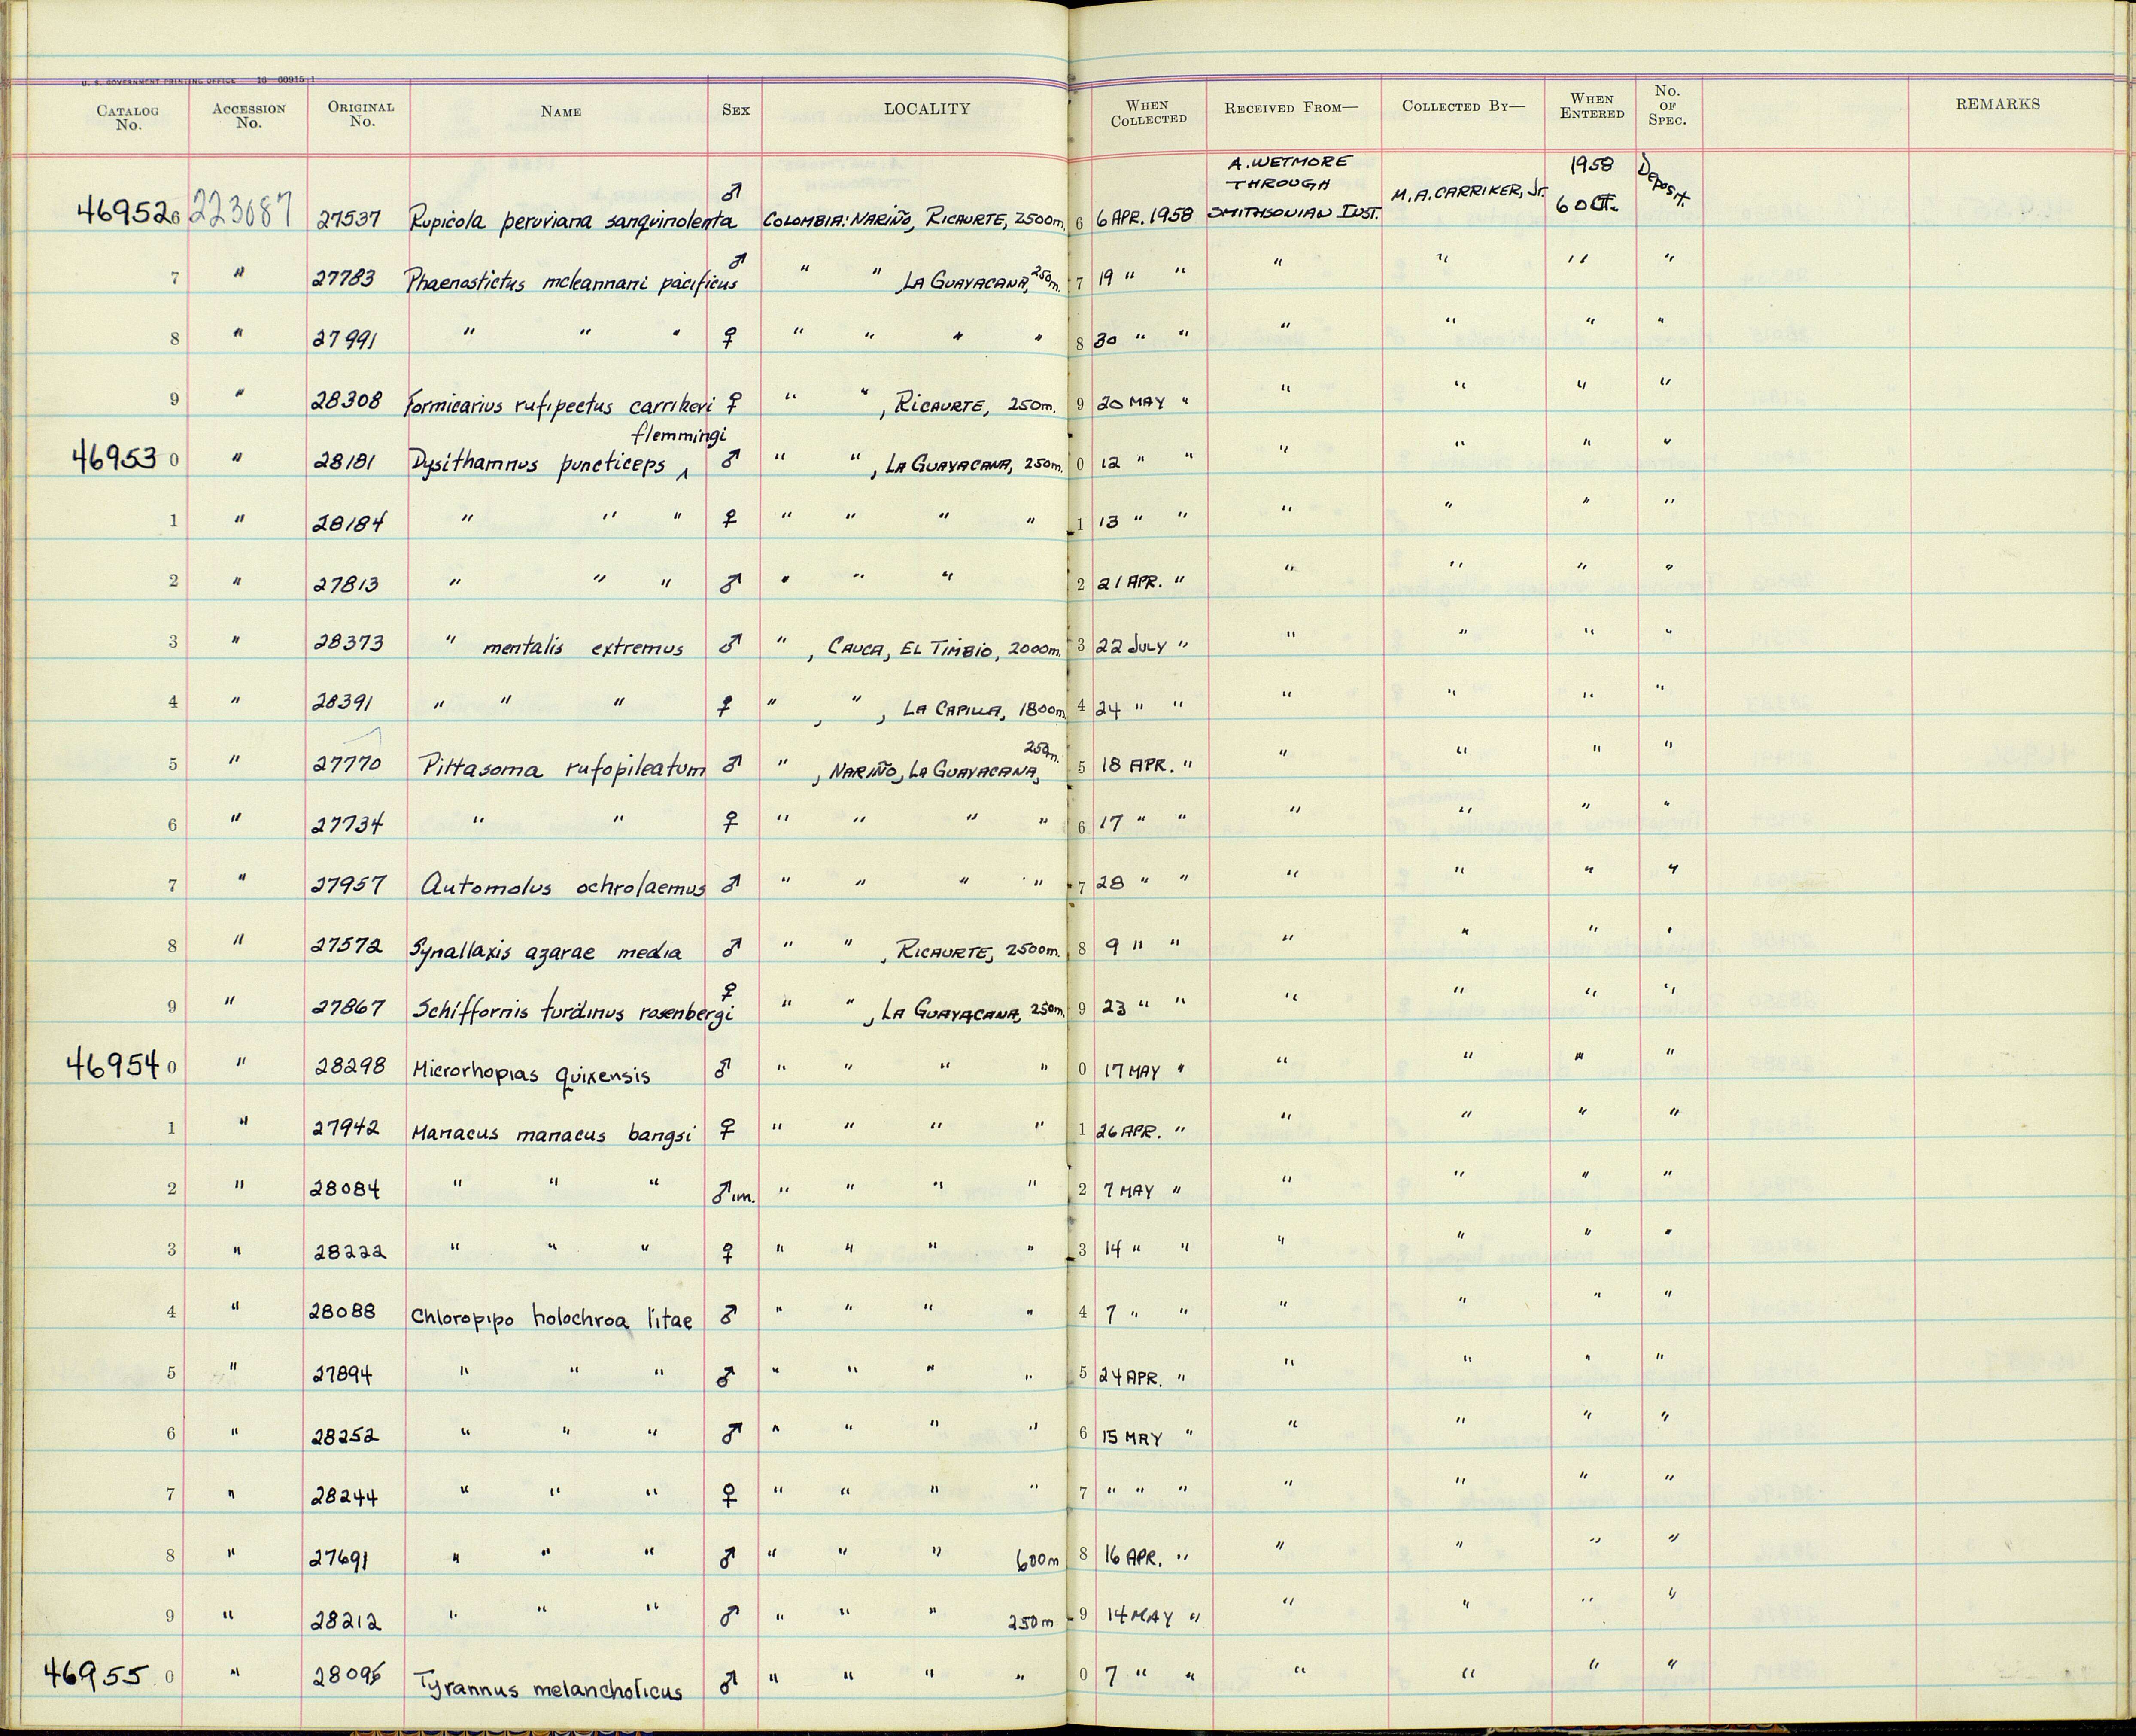 U. S. GOVERNMENT PRINTING OFFICE 16—60915-1
CATALOG No. ACCESSION No. ORIGINAL No. NAME SEX LOCALITY WHEN COLLECTED RECEIVED FROM— COLLECTED BY— WHEN ENTERED No. OF SPEC. REMARKS
469526 223687 27537 Rupicola peruviana sanguinolenta ♂ COLOMBIA: NARIÑO, RICAURTE, 2500m. 6 6 APR. 1958 A. WETMORE THROUGH SMITHSONIAN INST. M. A. CARRIKER, Jr. 1958 6 OCT. Deposit.
7 " 27783 Phaenostictus mcleannani pacificus ♂ " " , LA GUAYACANA, 250m. 7 19 " " " " " "
8 " 27991 " " " ♀ " " " " 8 30 " " " " " "
9 " 28308 Formicarius rufipectus carrikeri ♀ " " , RICAURTE, 250m. 9 20 MAY " " " " "
469530 " 28181 Dysithamnus puncticeps ^ flemmingi ♂ " " , LA GUAYACANA, 250m. 0 12 " " " " " "
1 " 28184 " " " ♀ " " " " 1 13 " " " " " "
2 " 27813 " " " ♂ " " " 2 21 APR. " " " " "
3 " 28373 " mentalis extremus ♂ " , CAUCA, EL TIMBIO, 2000m. 3 22 JULY " " " " "
4 " 28391 " " " ♀ " , " , LA CAPILLA, 1800m 4 24 " " " " " "
5 " 27770 Pittasoma rufopileatum ♂ " , NARIÑO, LA GUAYACANA, 250m. 5 18 APR. " " " " "
6 " 27734 " " ♀ " " " " 6 17 " " " " " "
7 " 27957 Automolus ochrolaemus ♂ " " " " 7 28 " " " " " "
8 " 27572 Synallaxis azarae media ♂ " " , RICAURTE, 2500m. 8 9 " " " " " "
9 " 27867 Schiffornis turdinus rosenbergi ♀ " " , LA GUAYACANA, 250m. 9 23 " " " " " "
469540 " 28298 Microrhopias quixensis ♂ " " " " 0 17 MAY " " " " "
1 " 27942 Manacus manacus bangsi ♀ " " " " 1 26 APR. " " " " "
2 " 28084 " " " ♂ im. " " " " 2 7 MAY " " " " "
3 " 28222 " " " ♀ " " " " 3 14 " " " " " "
4 " 28088 Chloropipo holochroa litae ♂ " " " " 4 7 " " " " " "
5 " 27894 " " " ♂ " " " " 5 24 APR. " " " " "
6 " 28252 " " " ♂ " " " " 6 15 MAY " " " " "
7 " 28244 " " " ♀ " " " " 7 " " " " " " "
8 " 27691 " " " ♂ " " " 600m 8 16 APR. " " " " "
9 " 28212 " " " ♂ " " " 250m 9 14 MAY " " " " "
469550 " Tyrannus melancholicus ♂ " " " " 0 7 " " " " " "